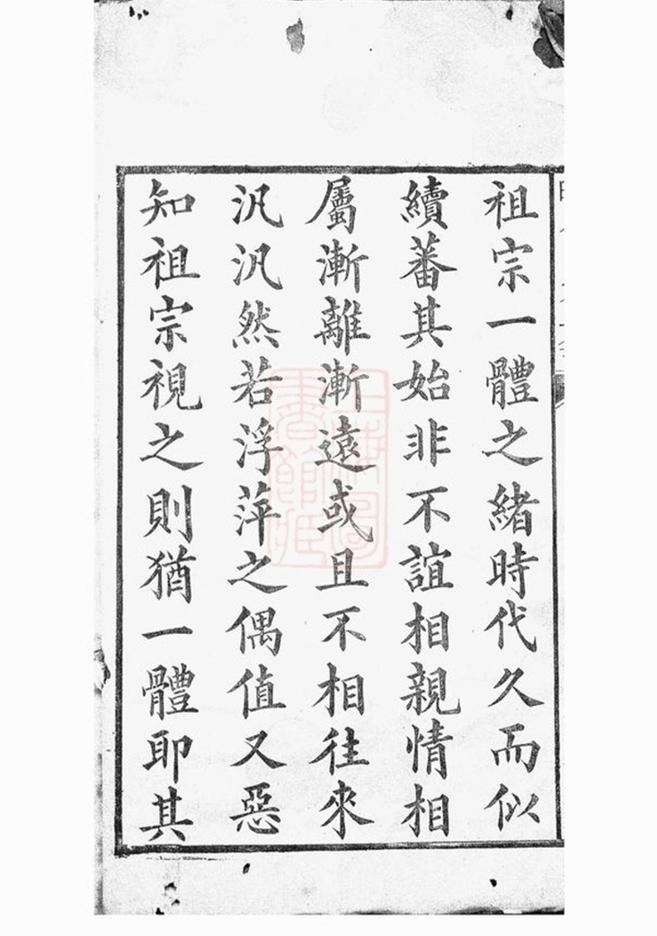 祖宗一體之緒時代久而似
續蕃其始非不誼相親情相
屬漸離漸遠或且不相往來
汎汎然若浮萍之偶值又惡
知祖宗視之則猶一體卽其